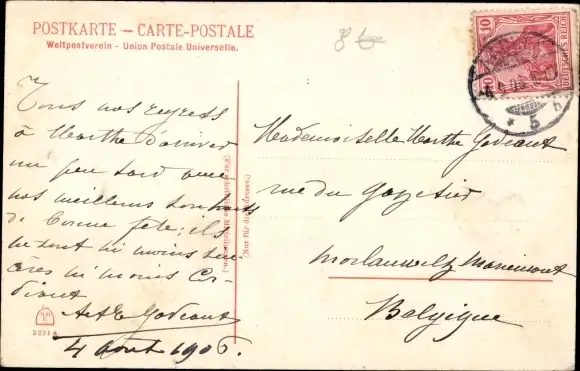 POSTKARTE — CARTE-POSTALE
Weltpostverein - Union Postale Universelle.
10 10
DEUTSCHES REICH
Tous nos regrets
à Marthe d'arriver
un peu tard avec
nos meilleurs souhaits
de bonne fête; ils
ne sont ni moins sin-
cères ni moins cor-
diaux
A et E Godeaux
4 Août 1906.
(Für schriftliche Mitteilungen.)
(Nur für die Adresse.)
Mademoiselle Marthe Godeaux
rue du Gazetier
Morlanwelz Mariemont
Belgique
5
3251